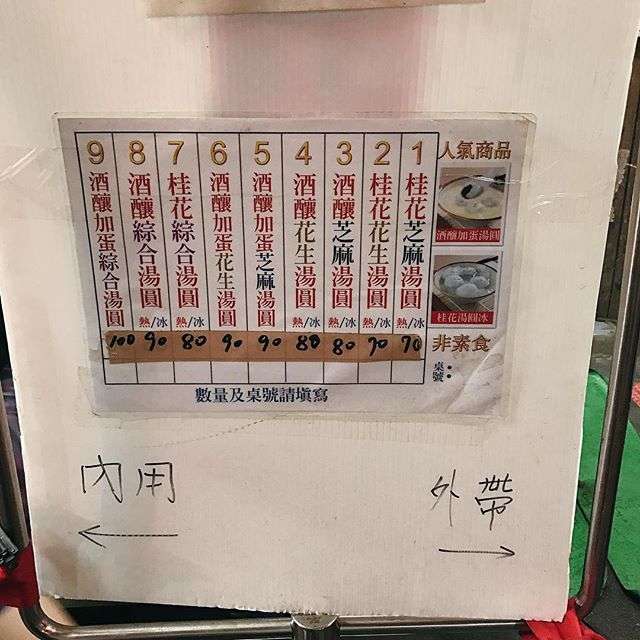 人氣商品
酒釀加蛋湯圓
桂花湯圓冰
非素食
桌號：
1 桂花芝麻湯圓 熱/冰 70
2 桂花花生湯圓 熱/冰 70
3 酒釀芝麻湯圓 熱/冰 80
4 酒釀花生湯圓 熱/冰 80
5 酒釀加蛋芝麻湯圓 90
6 酒釀加蛋花生湯圓 90
7 桂花綜合湯圓 熱/冰 80
8 酒釀綜合湯圓 熱/冰 90
9 酒釀加蛋綜合湯圓 100
數量及桌號請填寫
內用
外帶